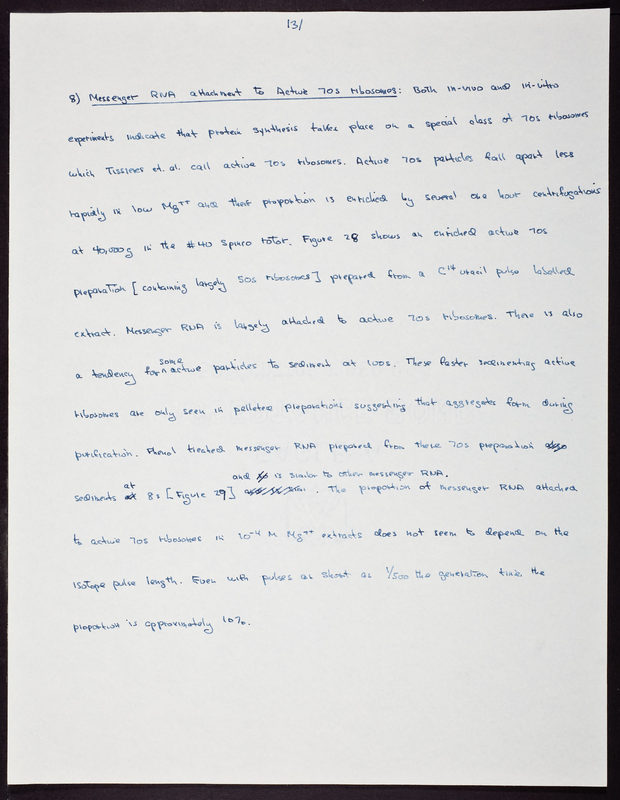 131
8) Messenger RNA attachment to Active 70s ribosomes: Both in-vivo and in-vitro
experiments indicate that protein synthesis takes place on a special class of 70s ribosomes
which Tissieres et. al. call active 70s ribosomes. Active 70s particles fall apart less
rapidly in low Mg++ and their proportion is enriched by several one hour centrifugations
at 40,000g in the #40 Spinco rotor. Figure 28 shows an enriched active 70s
preparation [containing largely 50s ribosomes] prepared from a C14 uracil pulse labelled
extract. Messenger RNA is largely attached to active 70s ribosomes. There is also
a tendency for some active particles to sediment at 100s. These faster sedimenting active
ribosomes are only seen in pelleted preparations suggesting that aggregates form during
purification. Phenol treated messenger RNA prepared from these 70s preparation
and is similar to other messenger RNA.
sediments at 8s [Figure 29] . The proportion of messenger RNA attached
to active 70s ribosomes in 10-4 M Mg++ extracts does not seem to depend on the
isotope pulse length. Even with pulses as short as 1/500 the generation time the
proportion is approximately 10%.